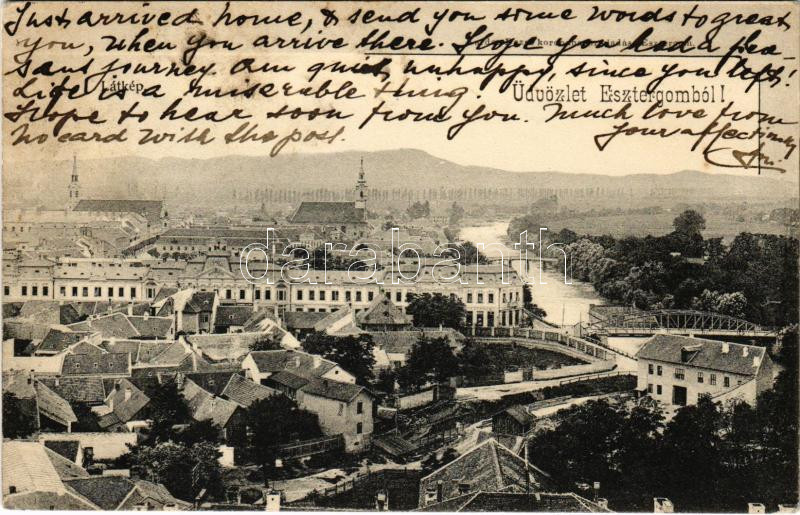 Just arrived home, & send you some words to great
you, when you arrive there. I hope you had a plea-
sant journey. am quiet unhappy, since you left!
Life is a miserable thing.
Látkép
Üdvözlet Esztergomból!
Hope to hear soon from you. Much love from
no card with the post. Your affectionately
darabanth.hu